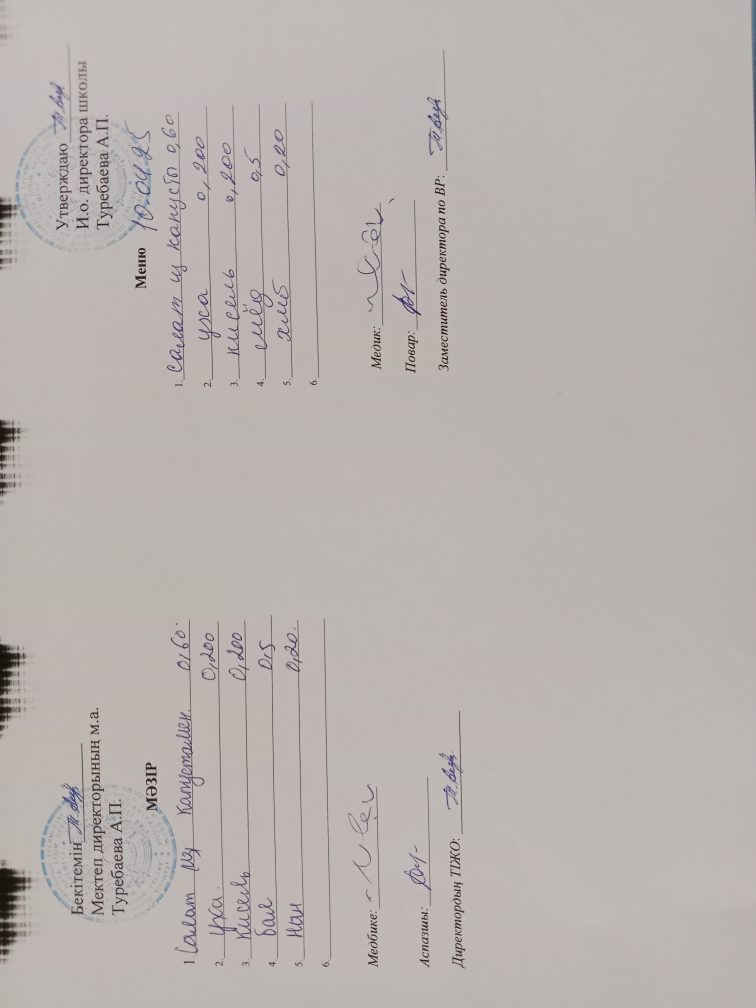 Бекітемін
Мектеп директорының м.а.
Туребаева А.П.
МӘЗІР
1 Салат из капустамен. 0,60.
2. Уха. 0,200
3. Кисель 0,200
4. бал 0,5
5. нан 0,20.
6.
Медбике:
Аспазшы:
Директордың ТІЖО:
Утверждаю
И.о. директора школы
Туребаева А.П.
Меню 10.04.25
1. Салат из капусты 0,60
2. уха 0,200
3. кисель 0,200
4. мёд 0,5
5. хлеб 0,20
6.
Медик:
Повар:
Заместитель директора по ВР: